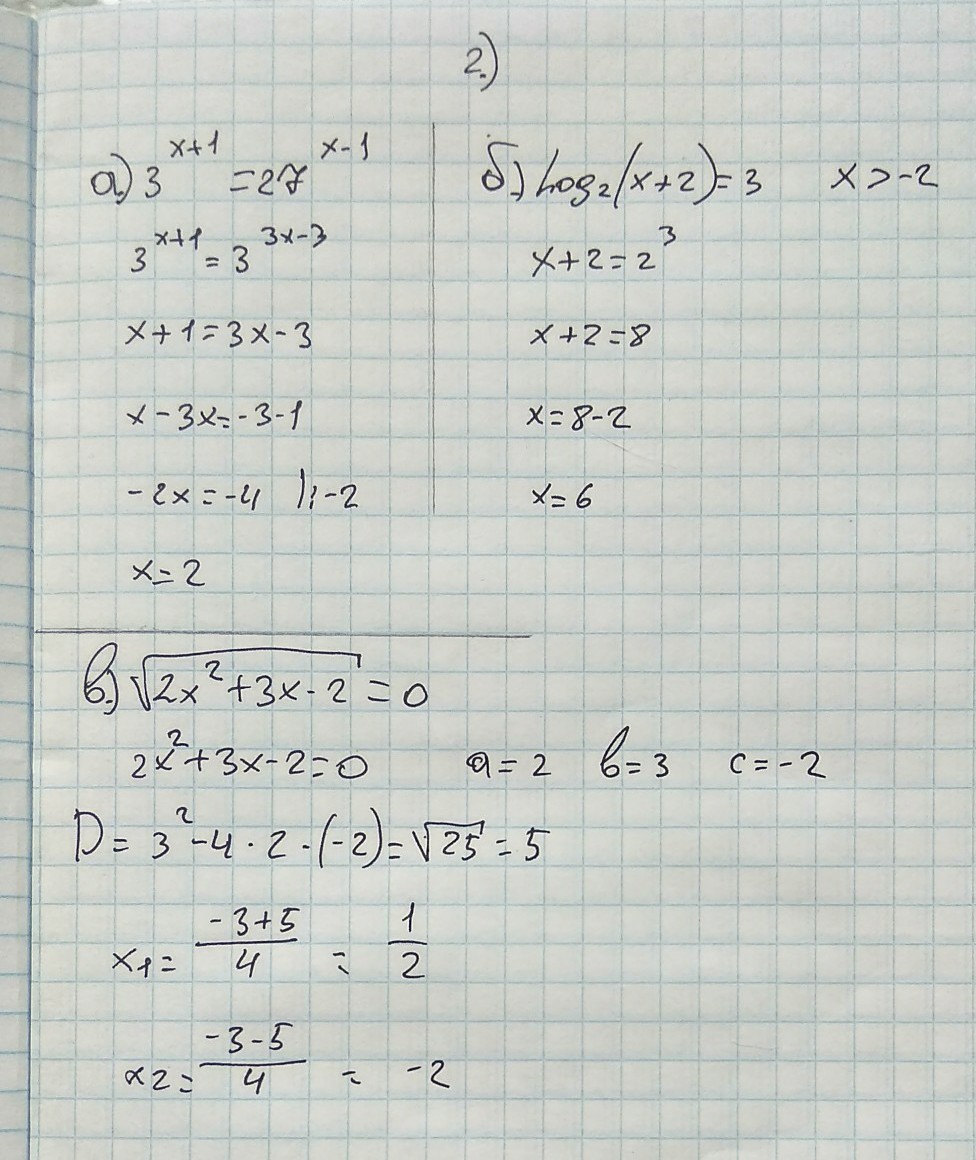 2.)
а.) 3^(x+1) = 27^(x-1)
3^(x+1) = 3^(3x-3)
x+1=3x-3
x-3x=-3-1
-2x=-4 |:-2
x=2
б.) Log₂(x+2)=3 x>-2
x+2=2³
x+2=8
x=8-2
x=6
в.) √(2x²+3x-2)=0
2x²+3x-2=0 a=2 b=3 c=-2
D=3²-4·2·(-2)=√25=5
x1=(-3+5)/4=1/2
x2=(-3-5)/4=-2